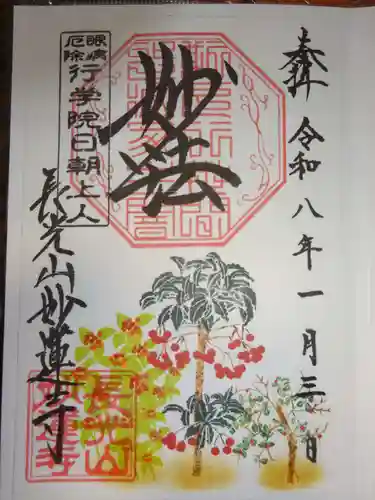 奉拝
令和八年一月三日
妙法
眼病
厄除
行学院日朝上人
長光山妙蓮寺
長光山
妙蓮寺